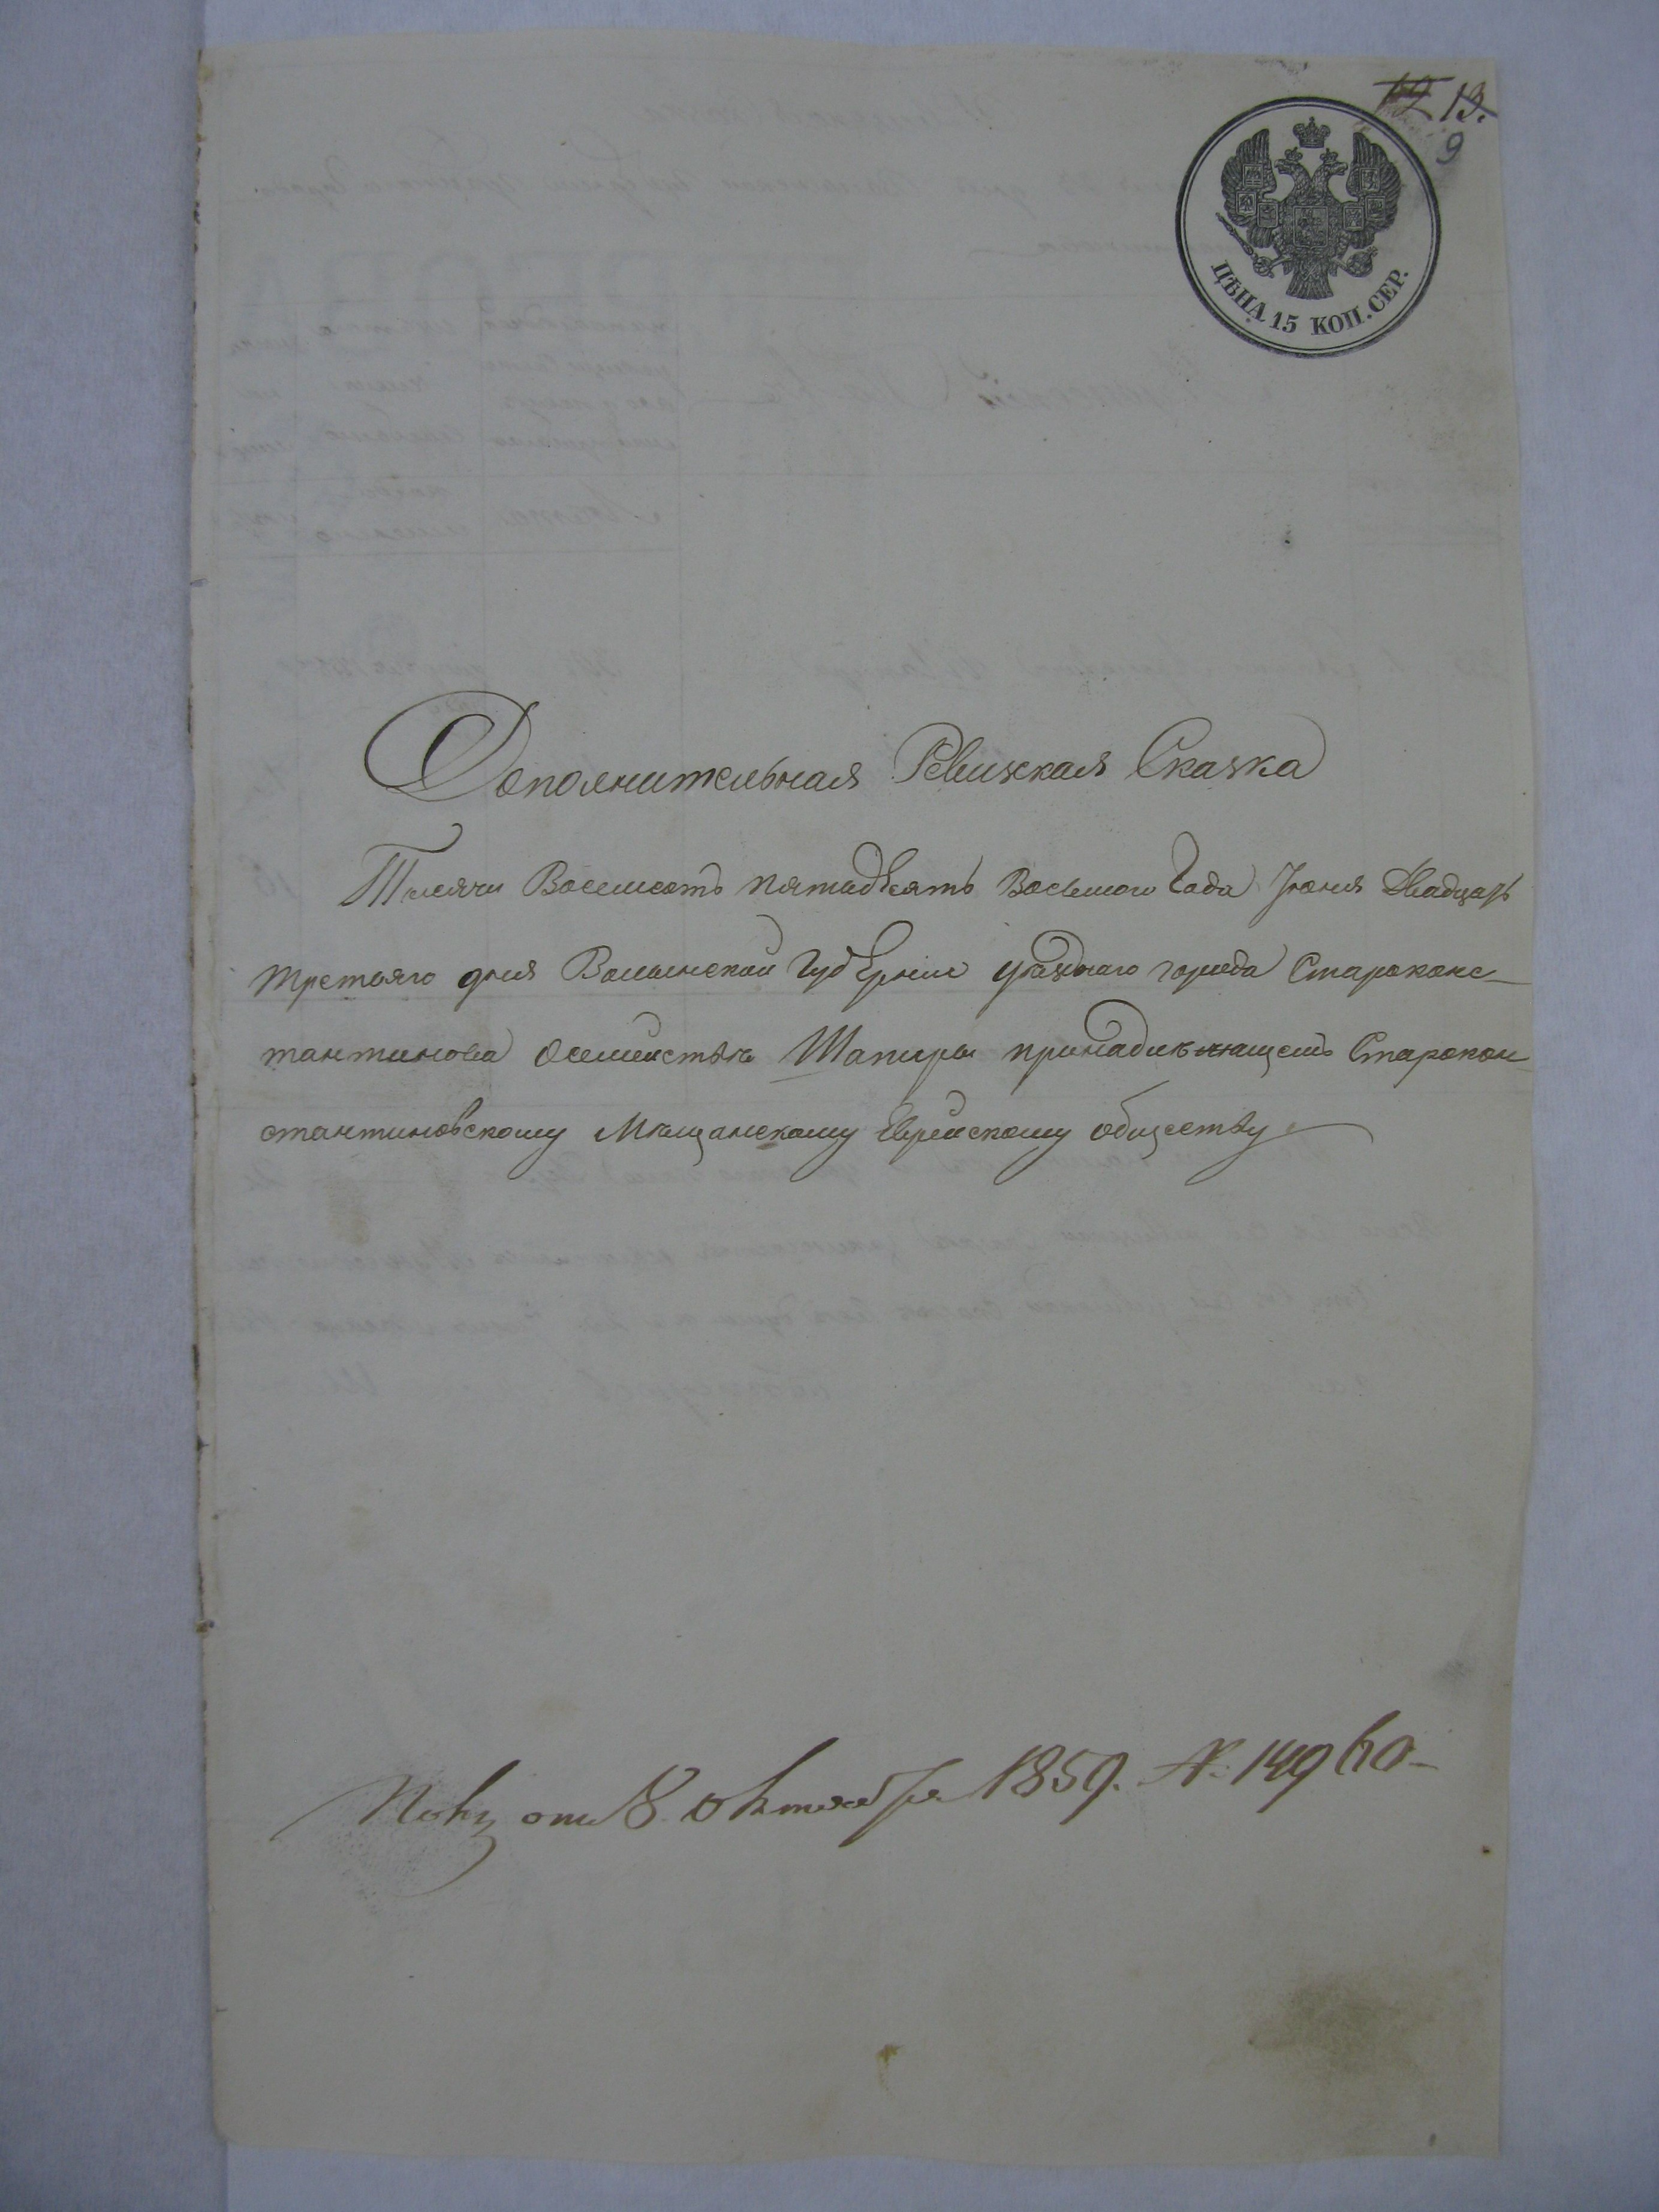 12 13.
9
ЦѢНА 15 КОП. СЕР.
Дополнительная Ревизкая Сказка
Тысячи Восемсотъ пятидѣсять Восьмого Года Іюня Двадцать
третьяго дня Волынской Губерніи уѣзднаго города Староконс-
тантинова о семействѣ Шапиры принадлежащемъ Старокон
стантиновскому Мѣщанскому Еврейскому обществу
от 8 октября 1859. № 14960